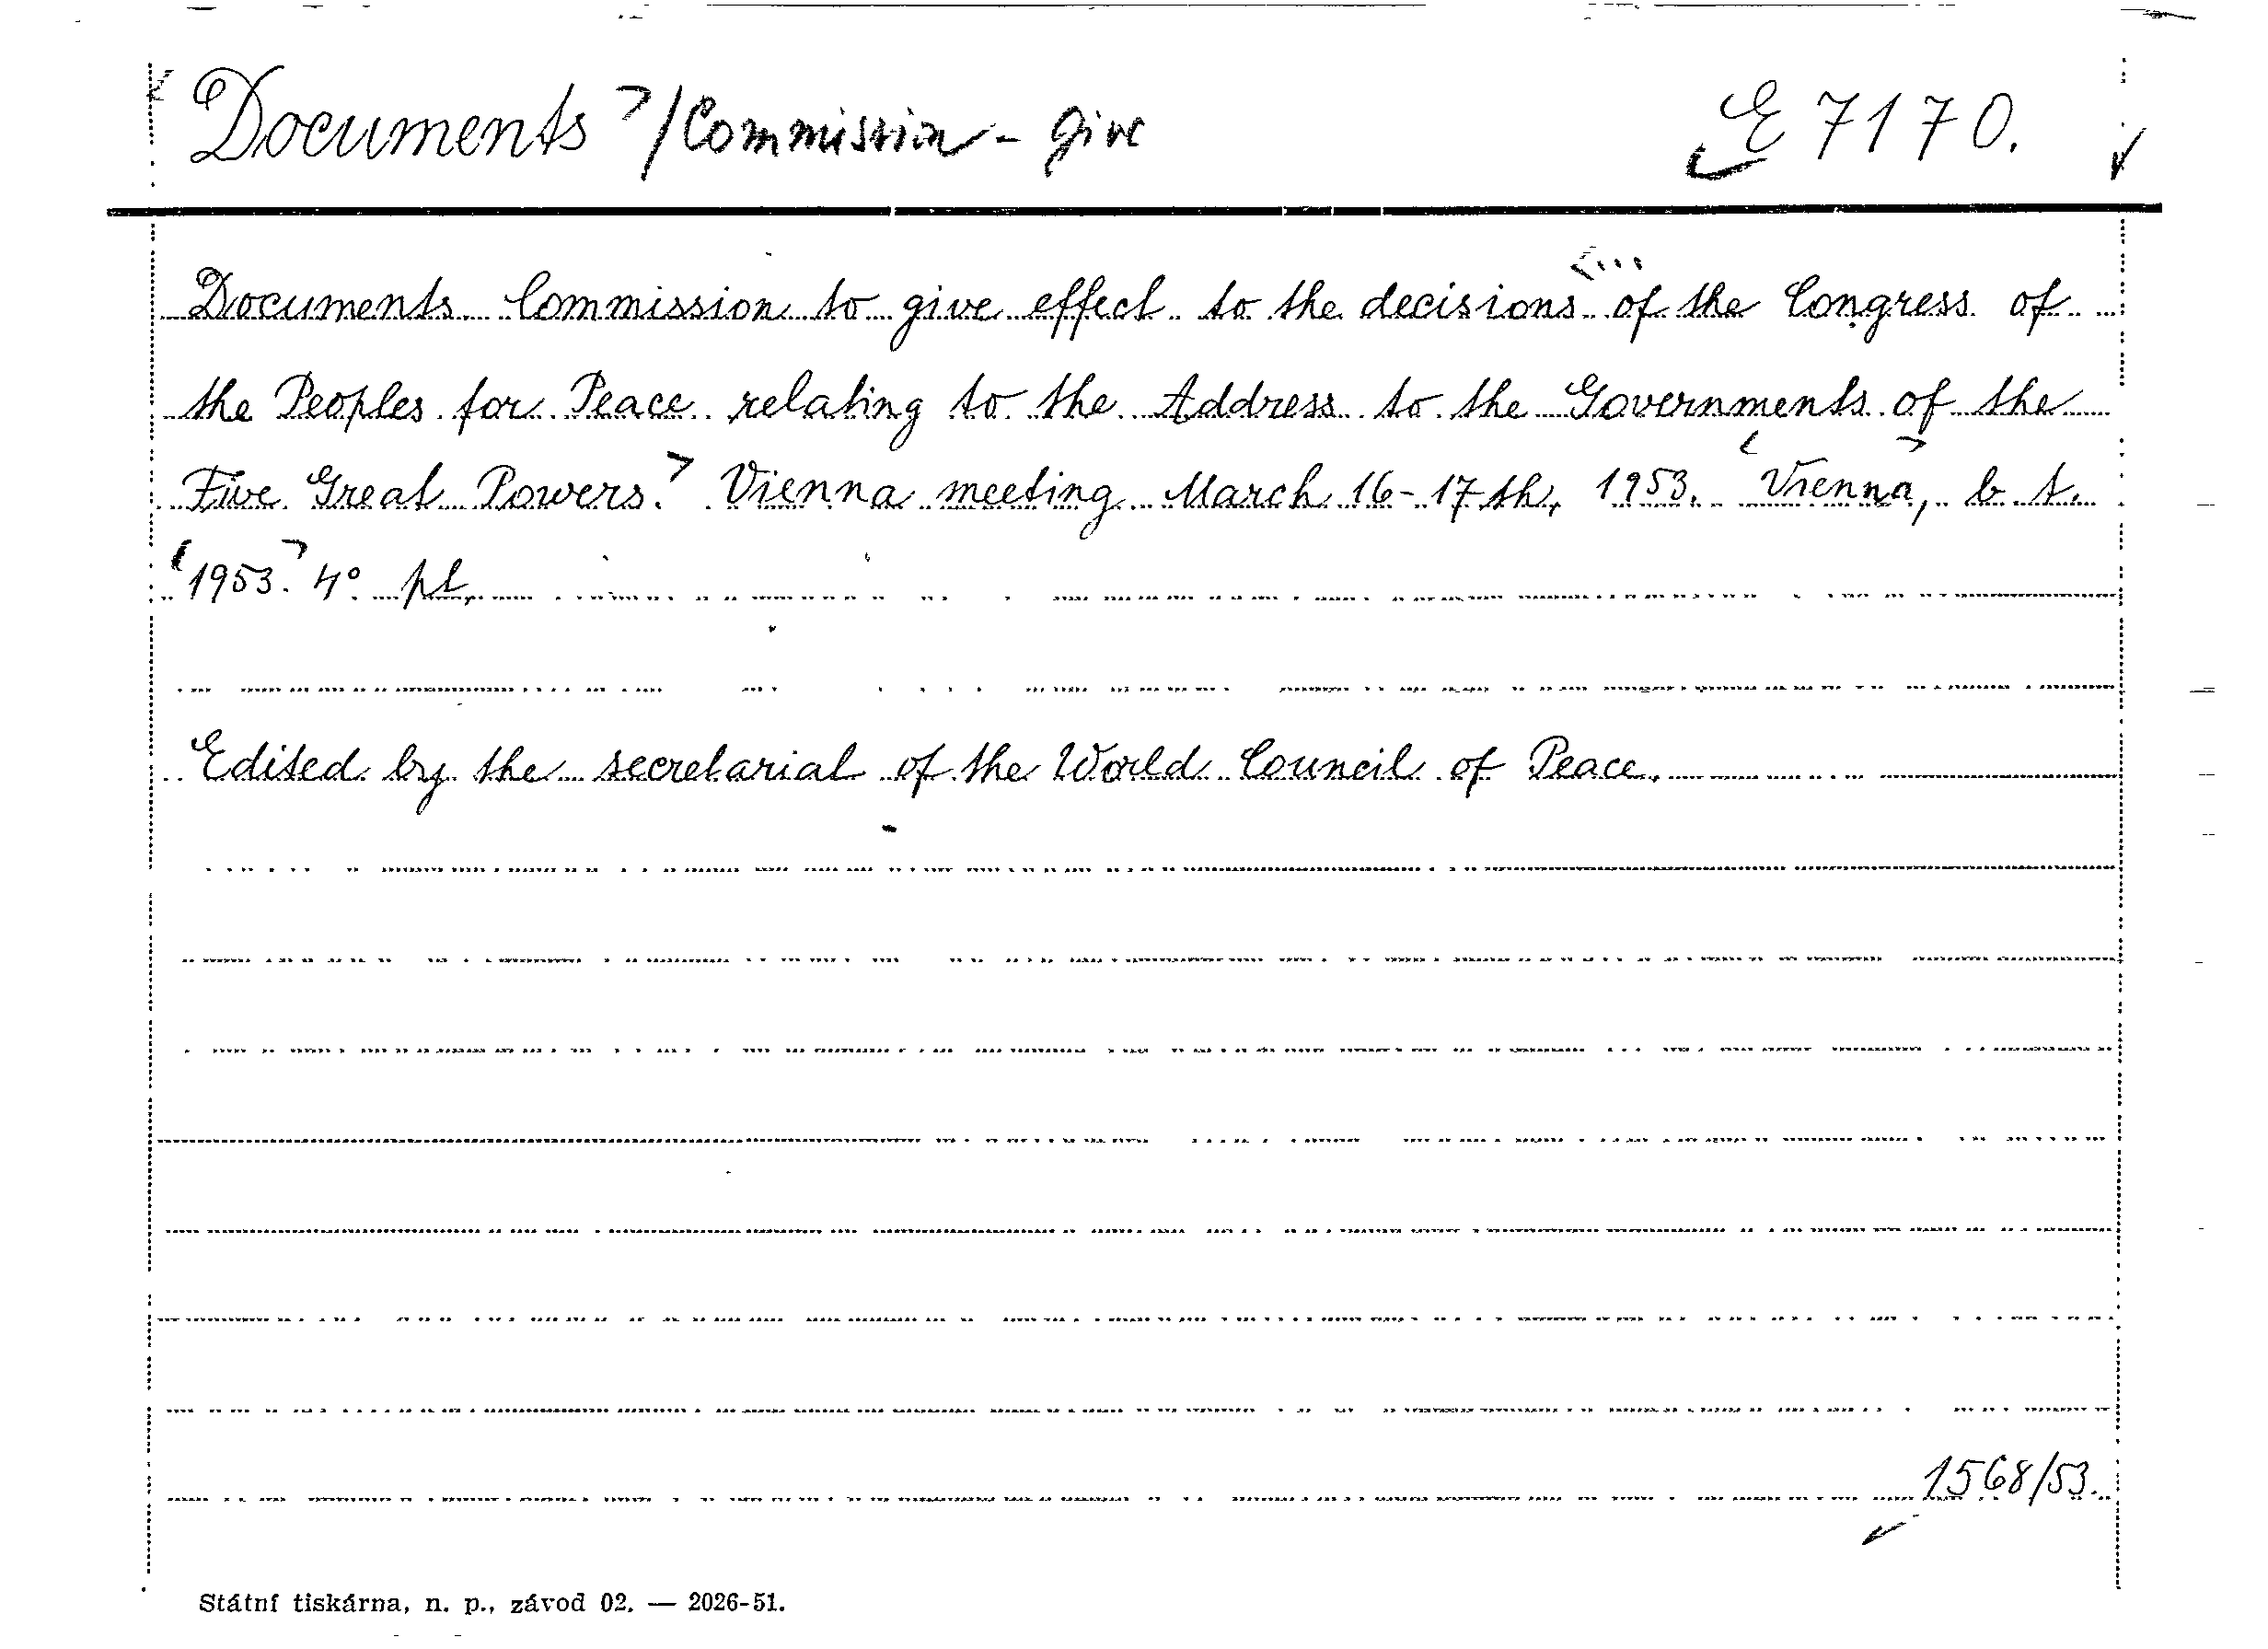 Documents /Commission - give E 7170.
Documents. Commission to give effect to the decisions of the Congress of
the Peoples for Peace relating to the Address to the Governments of the
Five Great Powers. Vienna meeting March 16-17th, 1953. Vienna, b. t.
1953. 4° pt.
Edited by the secretariat of the World Council of Peace.
1568/53.
Státní tiskárna, n. p., závod 02. — 2026-51.